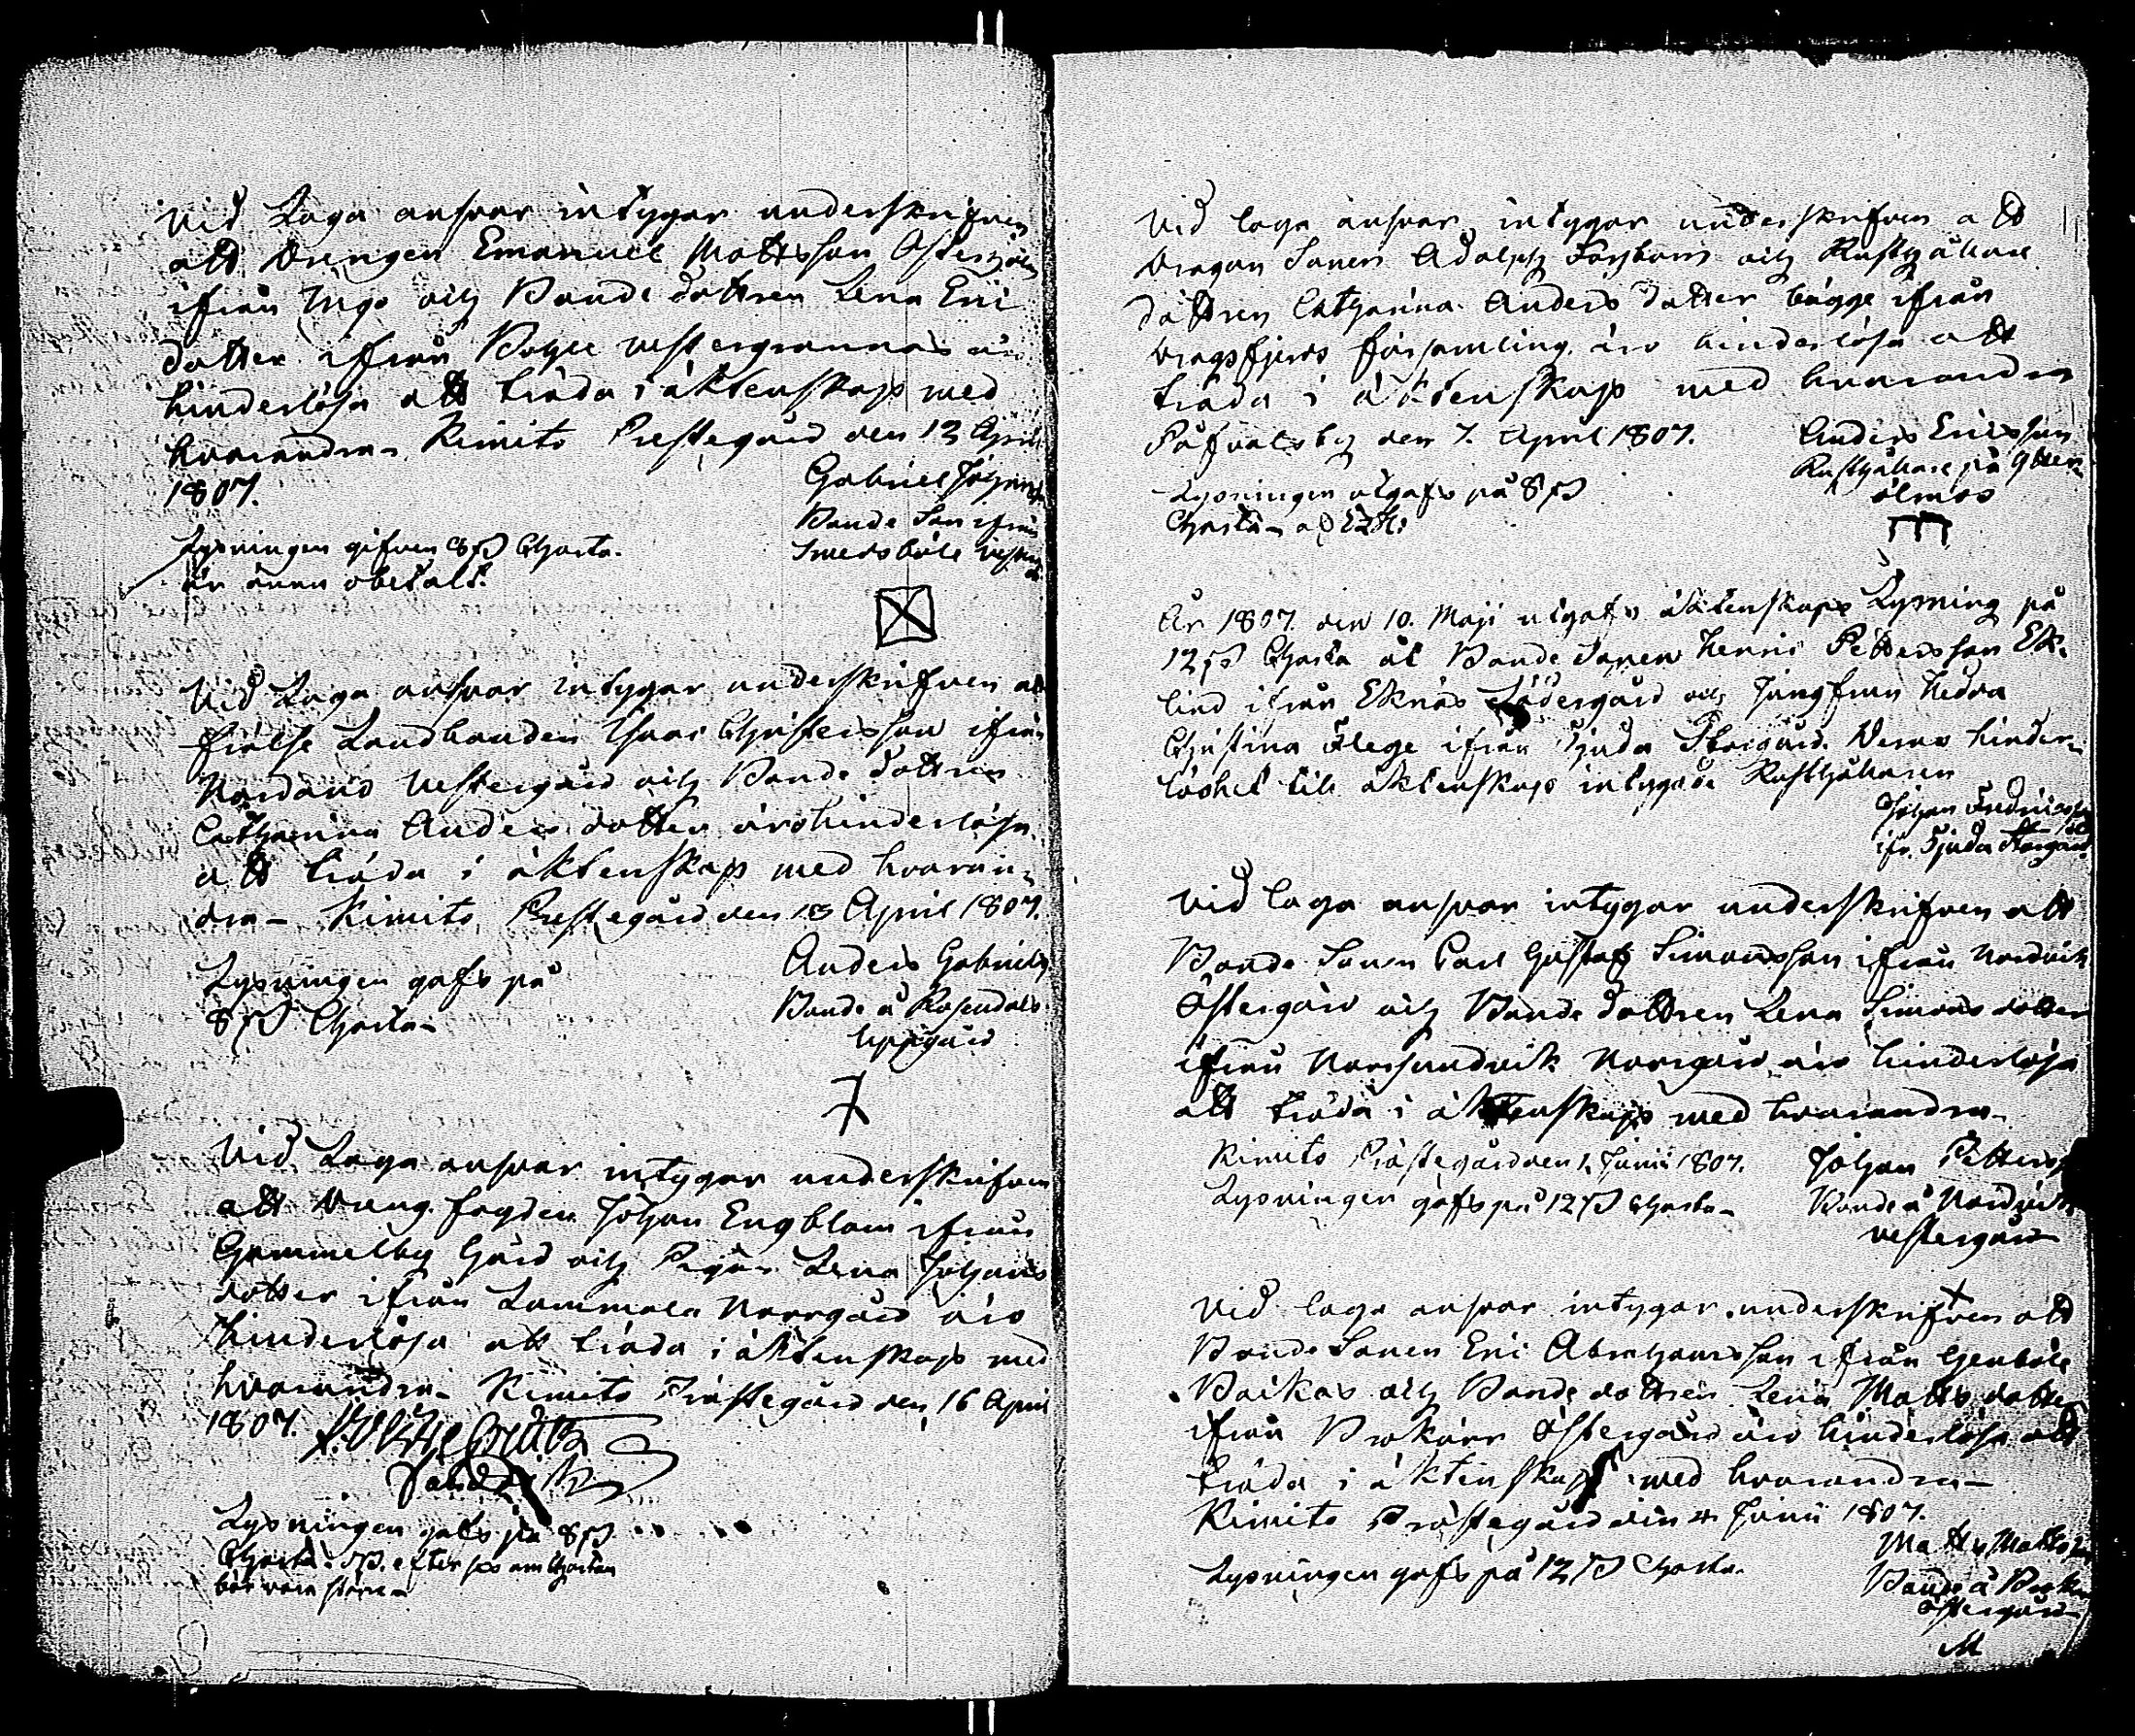 Vid Laga ansvar intygar underskrifven
att Drengen Emanuel Mattsson
ifrån och Bonde dottren Lena Eric
dotter ifrån vestergranna
hinderlösa att träda i äktenskap med
hvarandra Kimito Prestegård den 13 April
1807.
Gabriel Johans
Bonde Son ifrån
Smedsböle
Lysningen gifven 8 ß Charta.
är ännu obetalt.
Vid Laga ansvar intygar underskrifven at
frälse Landbonden Isaac Christersson ifrån
Nordanö Vestergård och Bonde dottren
Catharina Anders dotter äro hinderlösa
att träda i äktenskap med hvaran-
dra – Kimito Prestegård den 13 April 1807.
Lysningen gafs på
8 ß Charta –
Anders Gabriels
Bonde å Rosendals
Uppgård
Vid Laga ansvar intygar underskrifven
att Dreng fogden Johan Engblom ifrån
Gammelby Gård och Pigan Lena Johans
dotter ifrån Lammala Norrgård äro
hinderlösa att träda i äktenskap med
hvarandra – Kimito Prästegård den 16 April
1807.
Lysningen gafs på 8 ß
Charta efter om Chartan
bör vara större –
Vid laga ansvar intygar underskrifven att
Dragon Sonen Adolph Forsbom och Rusthållare
dottren Catharina Anders dotter bägge ifrån
Dragsfjerds församling äro hinderlösa att
träda i äktenskap med hvarandra
Påfvalsby den 7. April 1807.
Anders Ericsson
Rusthållare på Ytter-
ölmos
Lysningen utgafs på 8 ß
Charta –
År 1807 den 10. Maji utgafs äktenskaps Lysning på
12 ß Charta åt Bonde Sonen Henric Pettersson Ek-
lind ifrån Eknäs Södergård och Jungfrun Hedda
Christina Flege ifrån Tjuda Storgård. Deras hinder-
löshet till äktenskap intygade Rusthållaren
Johan Fredricsson
ifr. Tjuda Storgård
Vid laga ansvar intygar underskrifven att
Bonde Sonen Carl Gustaf Simonsson ifrån Nordvik
Östergård och Bonde dottren Lena Simons dotter
ifrån Norrsundvik Norrgård äro hinderlösa
att träda i äktenskap med hvarandra –
Kimito Prästegård den 1 Junii 1807.
Johan Petters
Bonde å Nordvik
vestergård
Lysningen gafs på 12 ß Charta –
Vid laga ansvar intygar underskrifven att
Bonde Sonen Eric Abrahamsson ifrån Genböle
Baikas och Bonde dottren Lena Matts dotter
ifrån Brokärr Östergård äro hinderlösa att
träda i äktenskap med hvarandra –
Kimito Prästegård den Junii 1807.
Matts Mattss
Bonde å
Östergård
M
Lysningen gafs på 12 ß Charta.